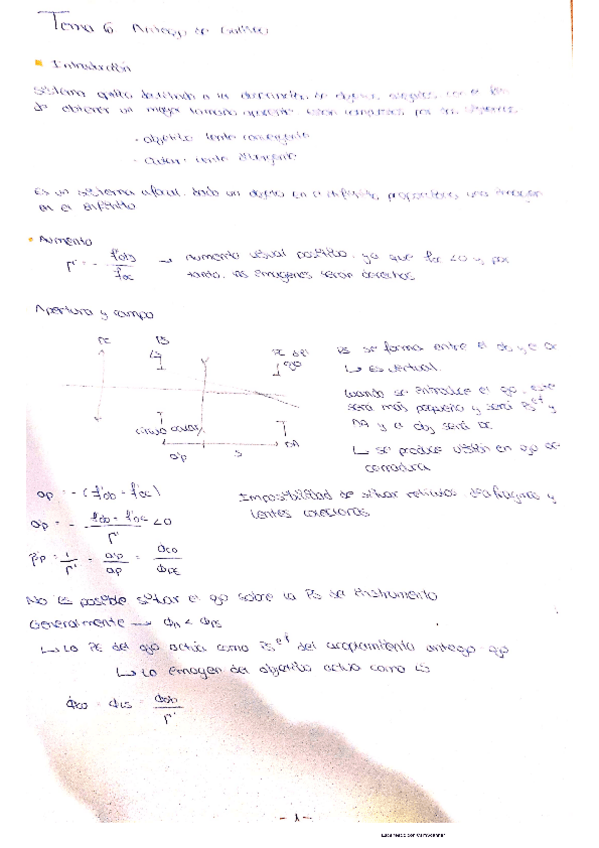 Tema 6 Anteojo de Galileo
Introducción
Sistema óptico destinado a la observación de objetos alejados, con el fin
de obtener un mayor tamaño aparente. Están compuestos por dos sistemas.
- Objetivo: lente convergente
- Ocular: lente divergente
Es un sistema afocal, dado un objeto en el infinito, proporciona una imagen
en el infinito
Aumento
Γ' = - f'ob / f'oc → Aumento visual positivo, ya que f'oc <0 y, por
tanto, las imágenes serán derechas
Apertura y campo
PE
LS
PE del
ojo
círculo ocular
DA
a'p
LS se forma entre el ob y el oc
↳ es virtual.
Cuando se introduce el ojo, este
será más pequeño y será PS ef y
DA y el obj será DC
↳ se produce visión en ojo de
cerradura
ap = - (f'ob - f'oc)
Imposibilidad de situar retículos, diafragmas y
lentes
a'p = - f'ob - f'oc / Γ' <0
β'p = 1 / Γ' = a'p / ap = ΦCO / ΦPE
No es posible situar el ojo sobre la PS del instrumento
Generalmente →
↳ La PE del ojo actúa como PS ef del acoplamiento anteojo-ojo
↳ La imagen del objetivo actúa como LS
ΦCO = ΦLS = Φob / Γ'
- 1 -